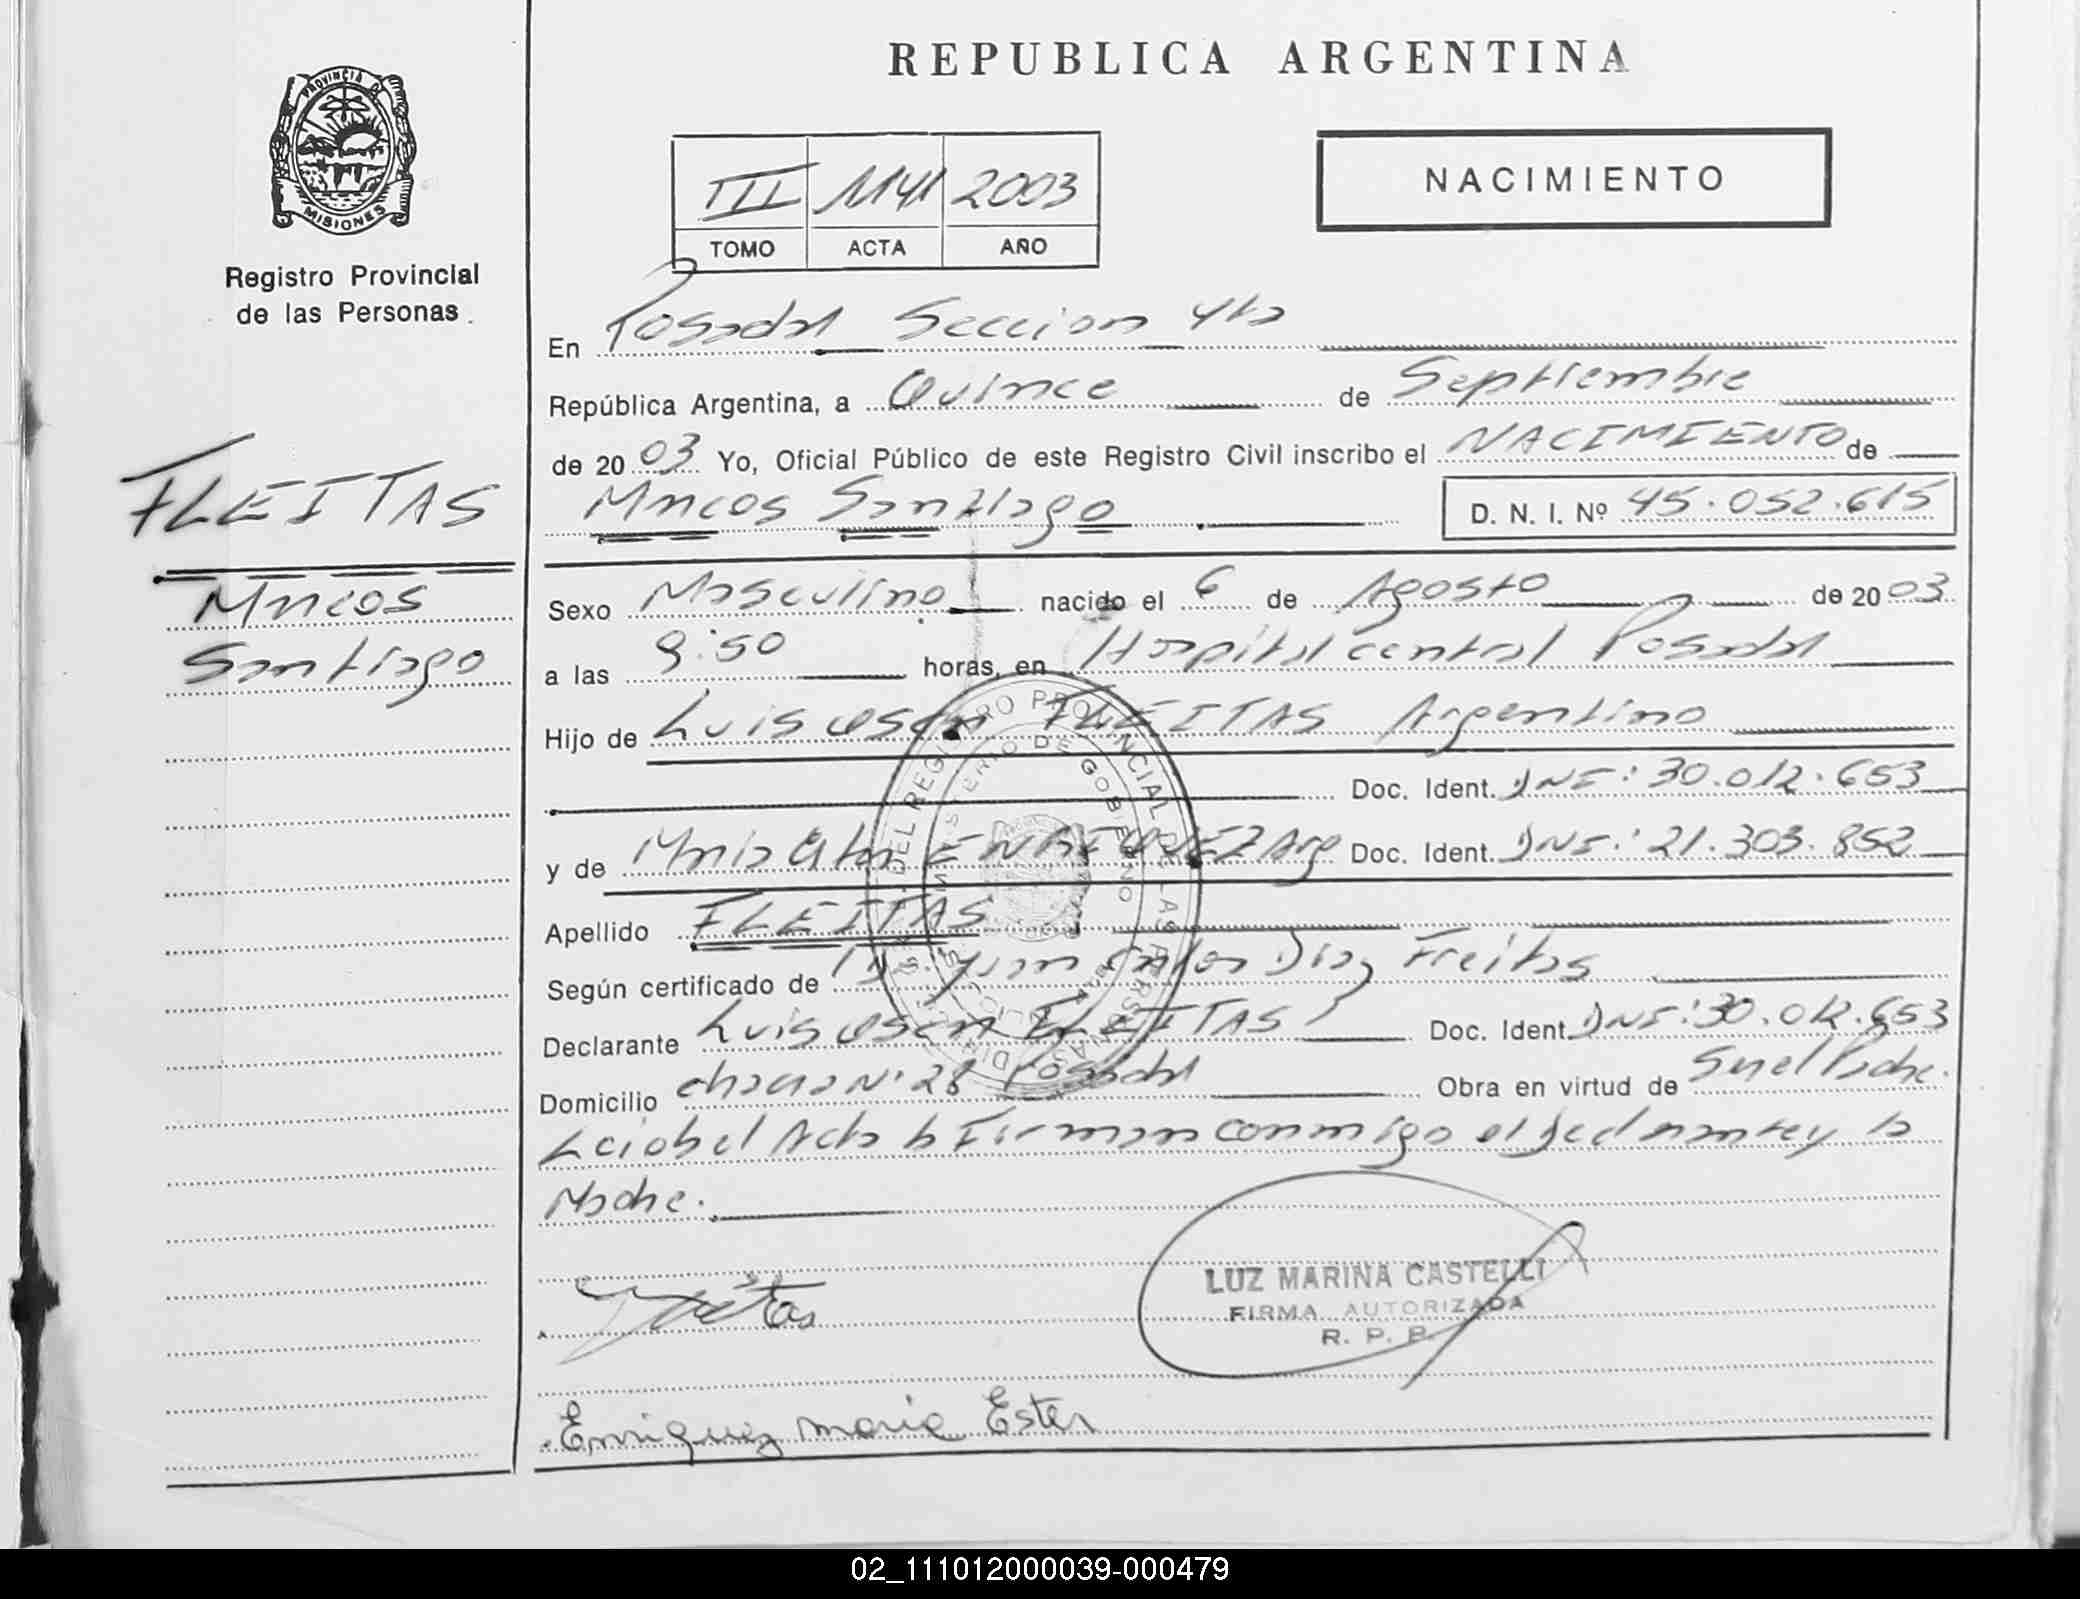 REPUBLICA ARGENTINA
PROVINCIA DE
MISIONES
Registro Provincial
de las Personas
III 1141 2003
TOMO ACTA AÑO
NACIMIENTO
En Posadas Seccion 4ta
República Argentina, a Quince de Septiembre
de 2003 Yo, Oficial Público de este Registro Civil inscribo el NACIMIENTO de
Marcos Santiago D. N. I. Nº 45.052.615
FLEITAS
Marcos
Santiago
Sexo Masculino nacido el 6 de Agosto de 2003
a las 9:50 horas, en Hospital central Posadas
Hijo de Luis Oscar FLEITAS Argentino
Doc. Ident. DNI: 30.012.653
y de Maria Ester ENRIQUEZ Arg Doc. Ident. DNI: 21.303.852
Apellido FLEITAS
Según certificado de Dr. Juan Carlos Diaz Freitas
Declarante Luis Oscar FLEITAS Doc. Ident. DNI: 30.012.653
Domicilio chacra Nº 28 Posadas Obra en virtud de Ser el Padre.
Leida el Acta la Firman conmigo el declarante y la
Madre.
LUZ MARINA CASTELLI
FIRMA AUTORIZADA
R. P. P.
Enriquez maria Ester
02_111012000039-000479